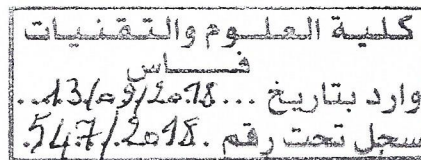 كلية العلوم والتقنيات
فاس
وارد بتاريخ ...13/09/2018...
سجل تحت رقم .547/2018.